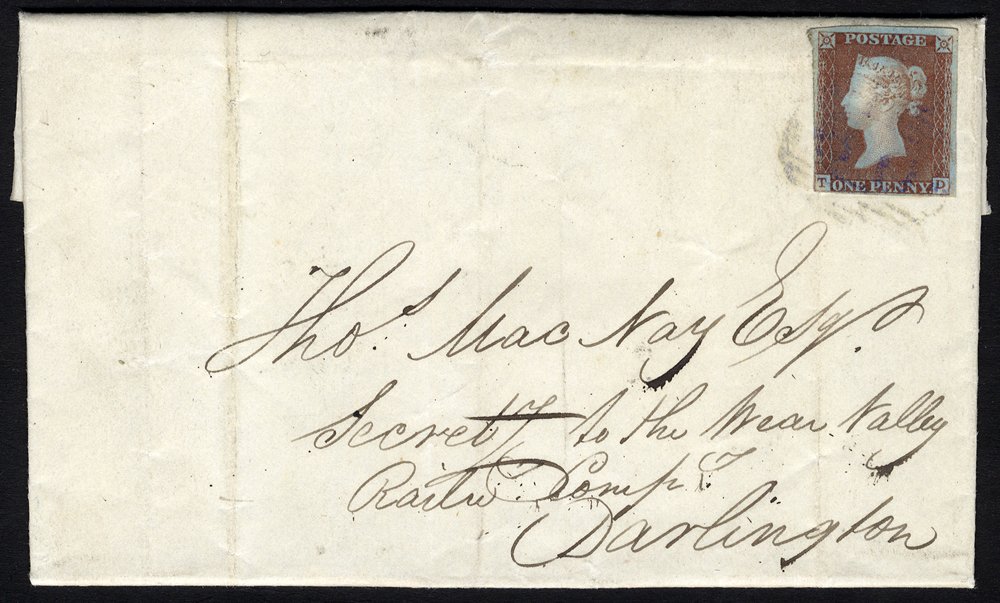 POSTAGE
T ONE PENNY D
Thos. Mac Nay Esqr.
Secrety to the Wear Valley
Railw Compy.
Darlington